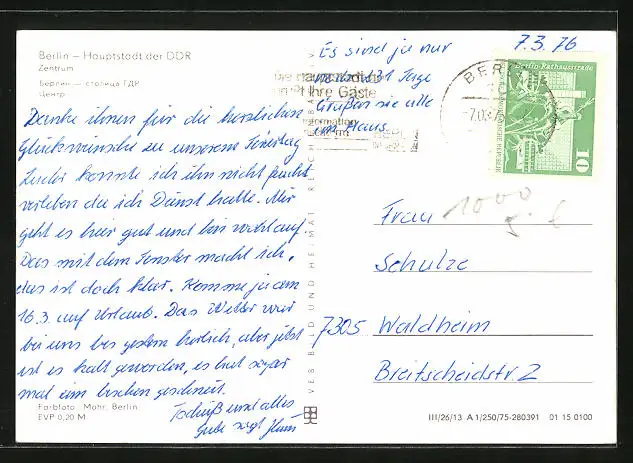 Berlin – Hauptstadt der DDR
Zentrum
Берлин – столица ГДР
Центр
Danke ihnen für die herzlichen
Glückwünsche zu unserem Feiertag
Leider konnte ich ihn nicht
verleben da ich Dienst hatte. Mir
geht es hier gut und bin wohlauf.
Das mit dem Fenster macht ich,
das ist doch klar. Komme ja am
16.3. auf Urlaub. Das Wetter war
bei uns bis gestern herrlich, aber jetzt
ist es kalt geworden, es hat sogar
mal ein bischen geschneit.
Tschüß und alles
Gute sagt
Es sind ja nur
noch 31 Tage
Grüßen sie alle
im Haus
Farbfoto: Mohr, Berlin
EVP 0,20 M
VEB BILD UND HEIMAT REICHENBACH
7.3.76
Ihre Gäste
Information
BERLIN
Berlin-Rathausstraße
10
Frau
1000
5.€
Schulze
7305 Waldheim
Breitscheidstr. 2
III/26/13 A 1/250/75-280391 01 15 0100